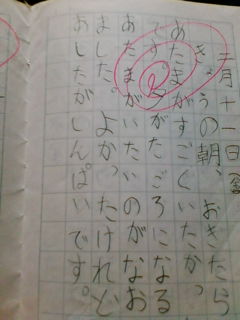 二月十一日(金
きょうの朝、おきたら
あたまがすごくいたかっ
です。がたごろになる
あたまがいたいのがなお
ました。よかったけれど
あしたがしんぱいです。